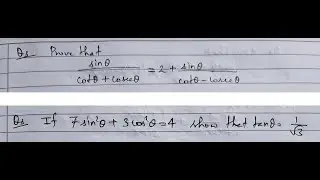 Qs- Prove that
sinθ / (cotθ + cosecθ) = 2 + sinθ / (cotθ - cosecθ)
Qs If 7 sin²θ + 3 cos²θ = 4 show that tanθ = 1/√3